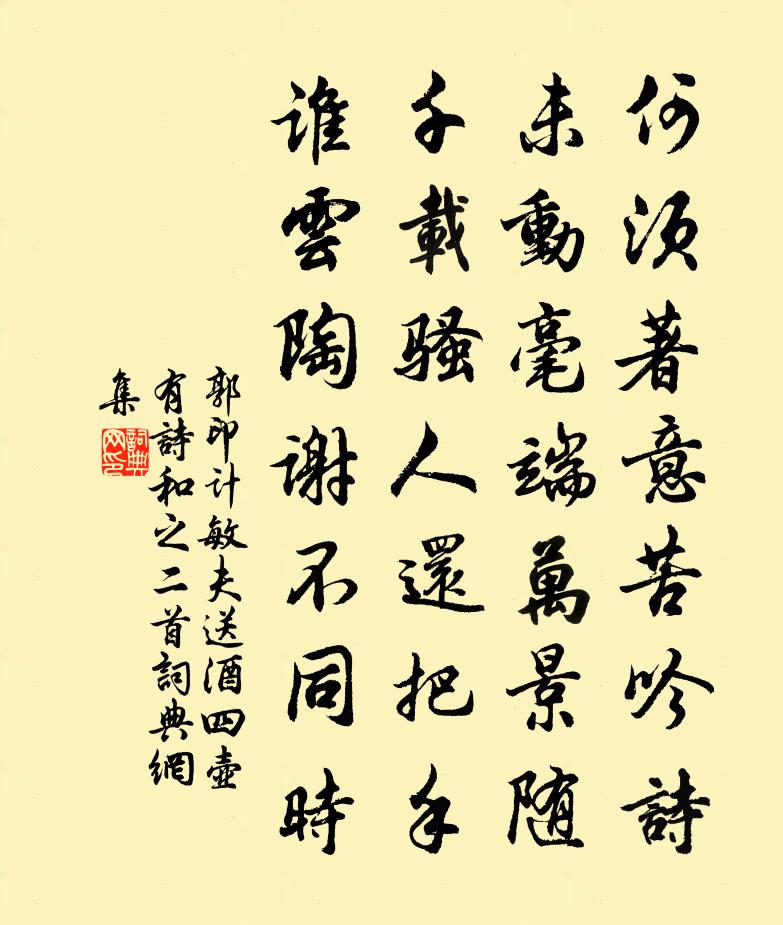 何須著意苦吟詩
未動毫端萬景随
千載騷人還把手
誰雲陶謝不同時
郭印计敏夫送酒四壶
有詩和之二首詞典網
集
詞典网印